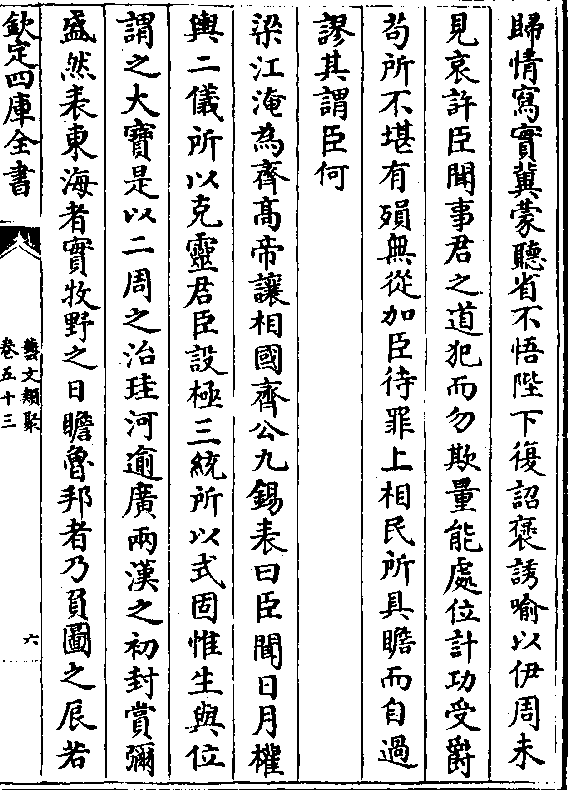 歸情寫實冀蒙聽省不悟陛下復詔褒誘喻以伊周未
見哀許臣聞事君之道犯而勿欺量能處位計功受爵
苟所不堪有殞無從加臣待罪上相民所具瞻而自過
謬其謂臣何
梁江淹為齊髙帝讓相國齊公九錫表曰臣聞日月權
輿二儀所以克靈君臣設極三統所以式固惟生與位
謂之大寶是以二周之治珪河逾廣兩漢之初封賞彌
盛然表東海者實牧野之日瞻魯邦者乃負圖之辰若
欽定四庫全書
藝文類聚
卷五十三
六